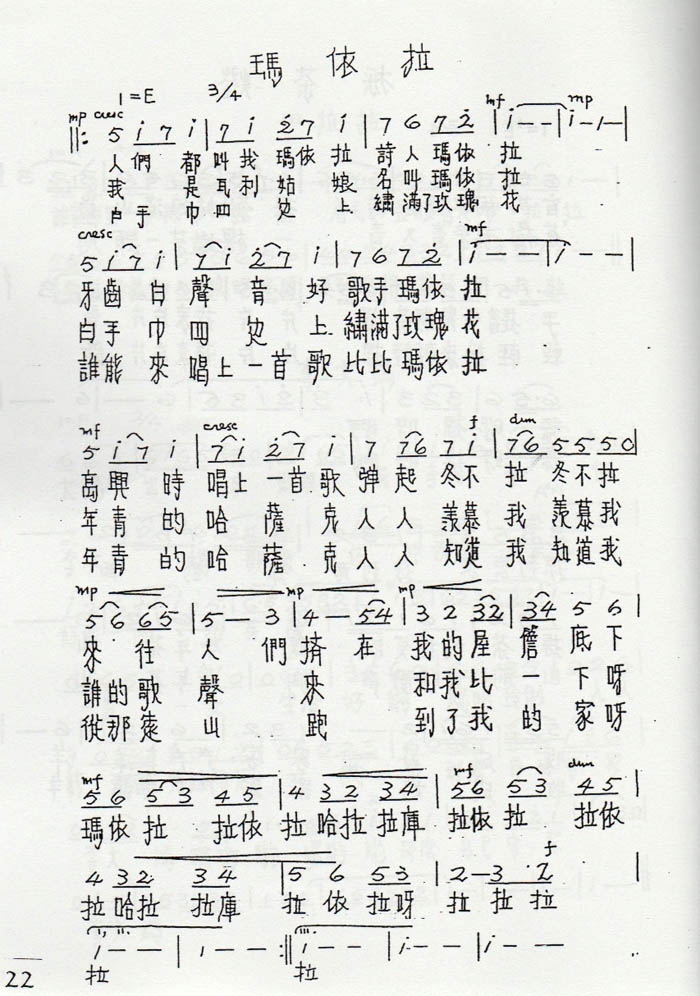 瑪依拉
1=E 3/4
mp cresc mf mp
‖: 5 i 7 i | 7 i 2 7 i | 7 6 7 2 | i - - | i - 1 - |
人們都叫我瑪依拉詩人瑪依拉
我是瓦利姑娘名叫瑪依拉
白手巾四邊上繡滿了玫瑰花
cresc mf
5 i 7 i | 7 i 2 7 i | 7 6 7 2 | i - - | i - - |
牙齒白聲音好歌手瑪依拉
白手巾四边上繡滿了玫瑰花
誰能來唱上一首歌比比瑪依拉
mf cresc f dim
5 i 7 i | 7 i 2 7 i | 7 7 6 7 i | 7 6 5 5 5 0 |
高興時唱上一首歌彈起冬不拉冬不拉
年青的哈薩克人人羨慕我羨慕我
年青的哈薩克人人知道我知道我
mp mp mp
5 6 6 5 | 5 - - 3 | 4 - 5 4 | 3 2 3 2 | 3 4 5 6 |
來往人們擠在我的屋簷底下
誰的歌聲來和我比一下呀
從那遠山跑到了我的家呀
mf mf dim
5 6 5 3 4 5 | 4 3 2 3 4 | 5 6 5 3 4 5 |
瑪依拉拉依拉哈拉拉庫拉依拉拉依
f
4 3 2 3 4 | 5 6 5 3 | 2 - 3 7 |
拉哈拉拉庫拉依拉呀拉拉拉
i - - | 1 - - :‖ i - - | i - - | i - - |
拉 拉
22